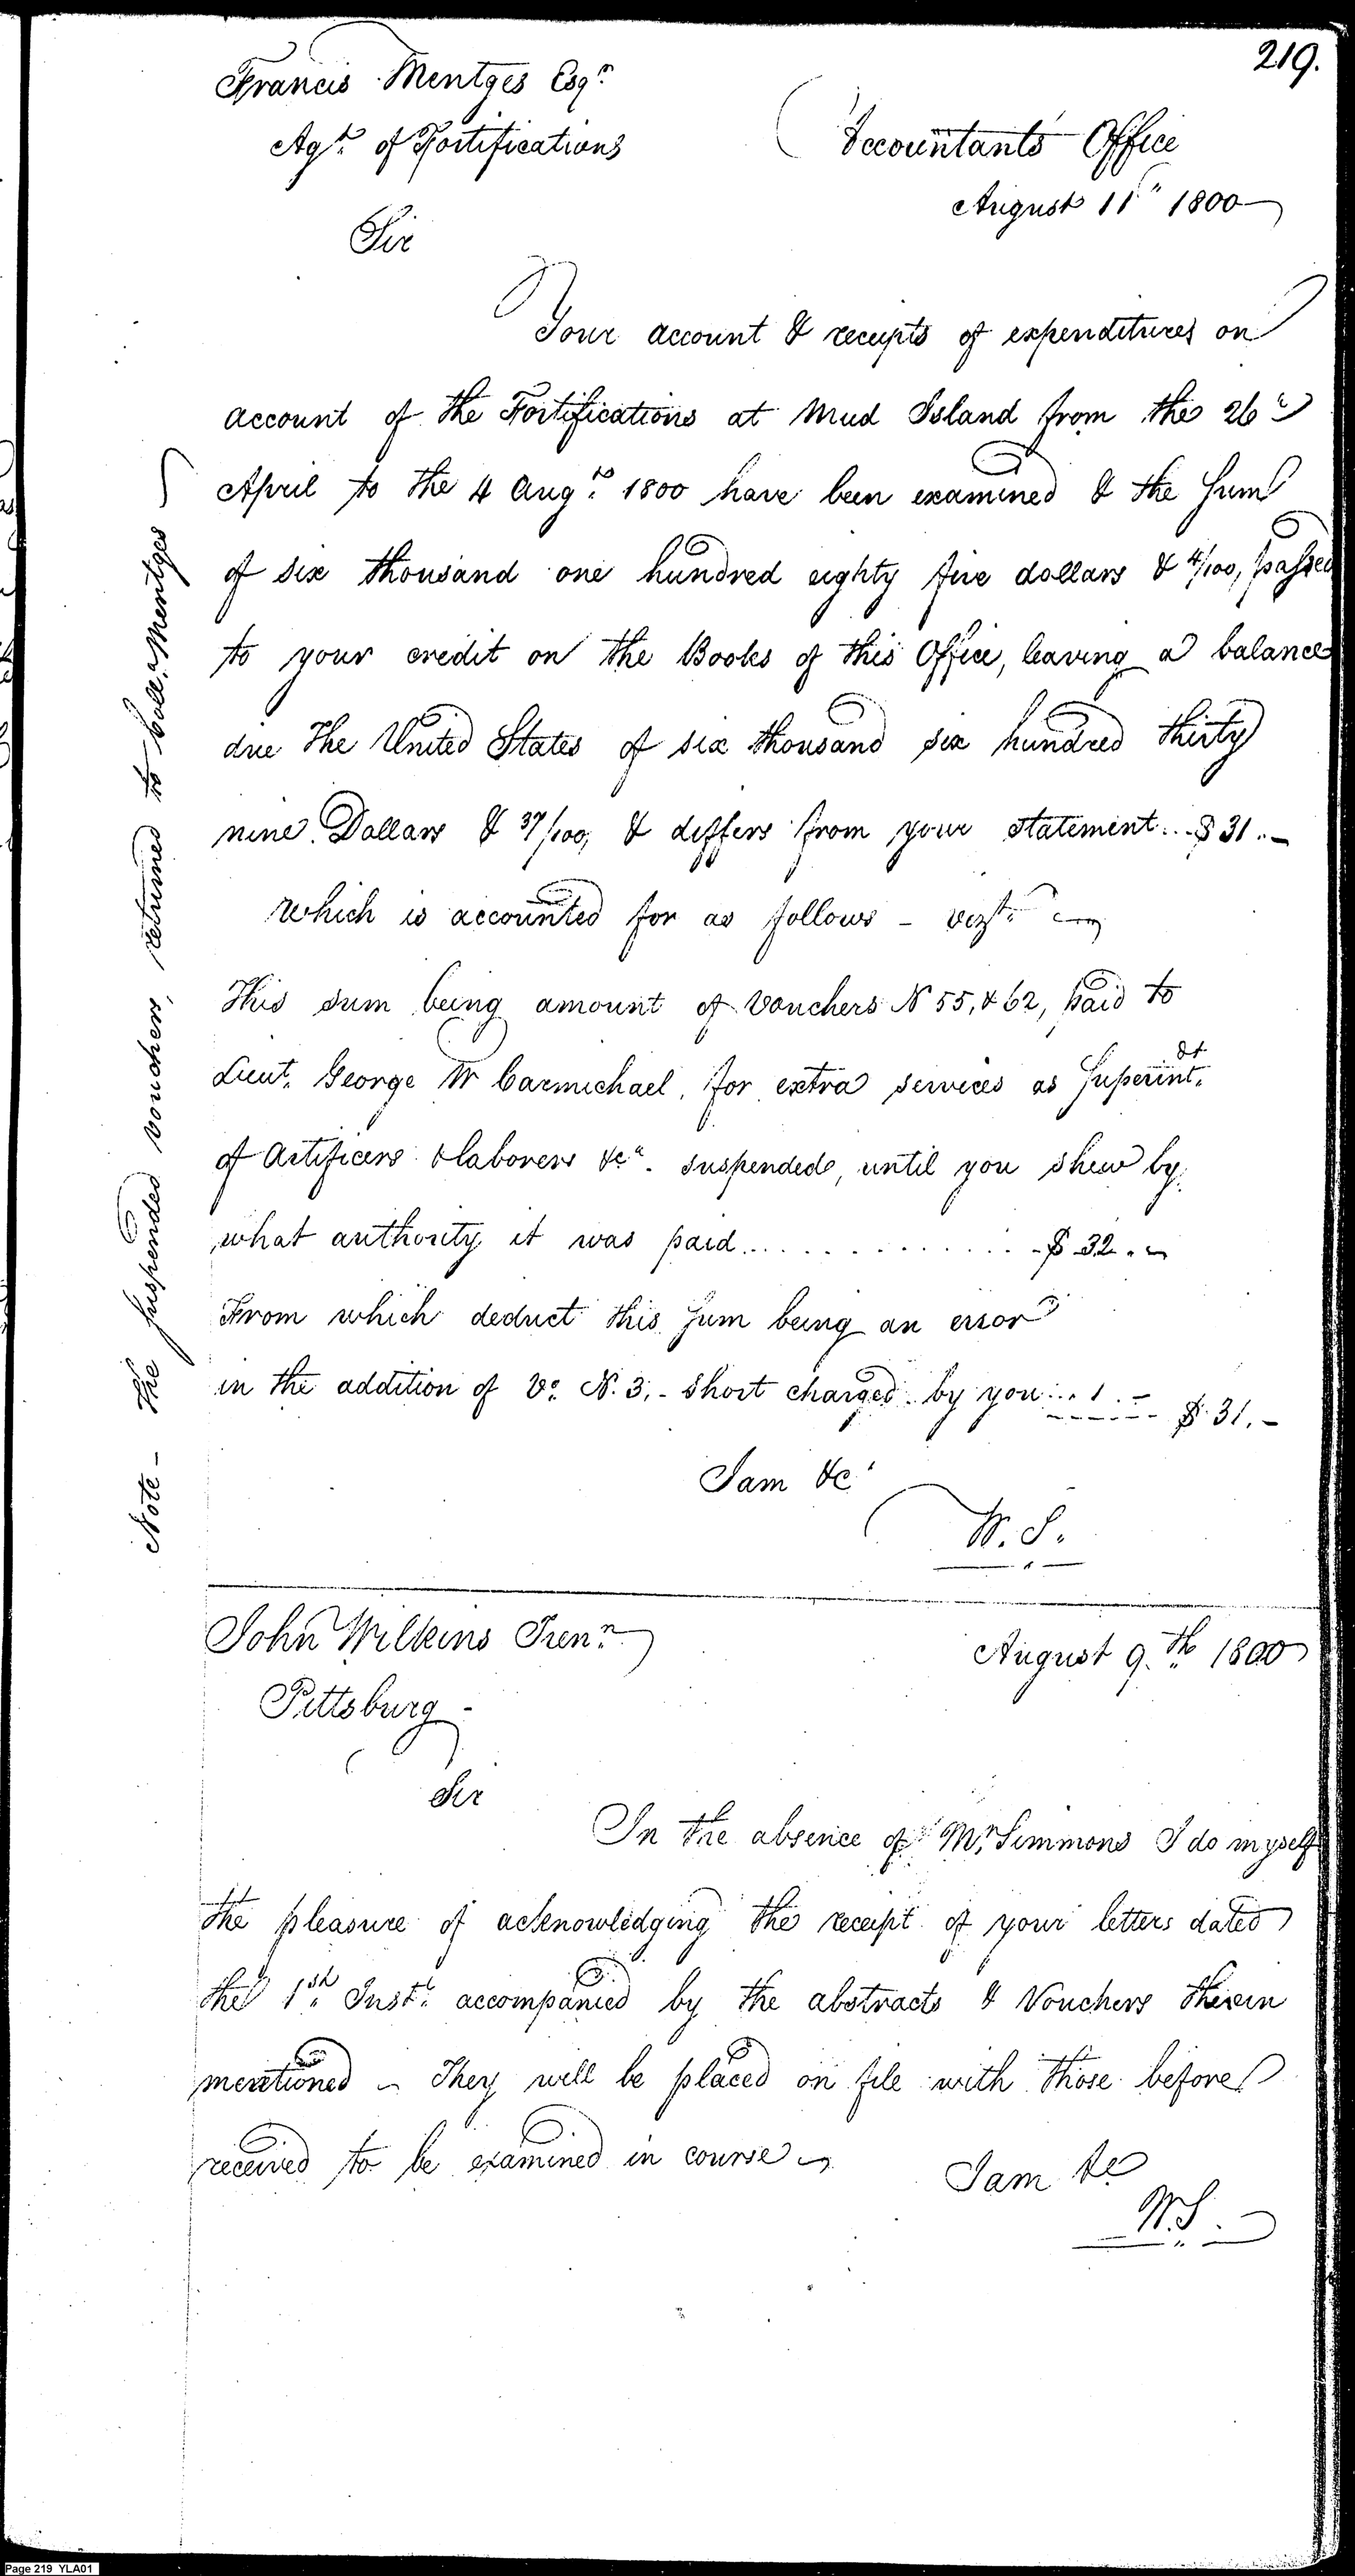 219.
Francis Mentges Esqr.
Agt. of Fortifications
Accountants Office
August 11" 1800
Sir
Your account & receipts of expenditures on
account of the Fortifications at Mud Island from the 26th
April to the 4 Augt. 1800 have been examined & the Sum
of six thousand one hundred eighty five dollars & 4/100, passed
to your credit on the Books of this Office, leaving a balance
due the United States of six thousand six hundred thirty
nine Dollars & 37/100, & differs from your statement...$31.-
which is accounted for as follows - vizt.
This sum being amount of Vouchers N 55, & 62, paid to
Lieut. George W Carmichael, for extra services as Superintdt.
of Artificers & laborers &ca. suspended, until you shew by
what authority it was paid..............$32.-
From which deduct this Sum being an error
in the addition of Vo. N. 3, - short charged by you...1.- $31.-
I am &c
W. S.
Note - The suspended vouchers, returned to Coll. Mentges
John Wilkins Junr.
August 9.th 1800
Pittsburg -
Sir
In the absence of Mr. Simmons I do myself
the pleasure of acknowledging the receipt of your letters dated
the 1st. Inst. accompanied by the abstracts & Vouchers therein
mentioned - They will be placed on file with those before
received to be examined in course -
I am &c
W.S.
Page 219 YLA01